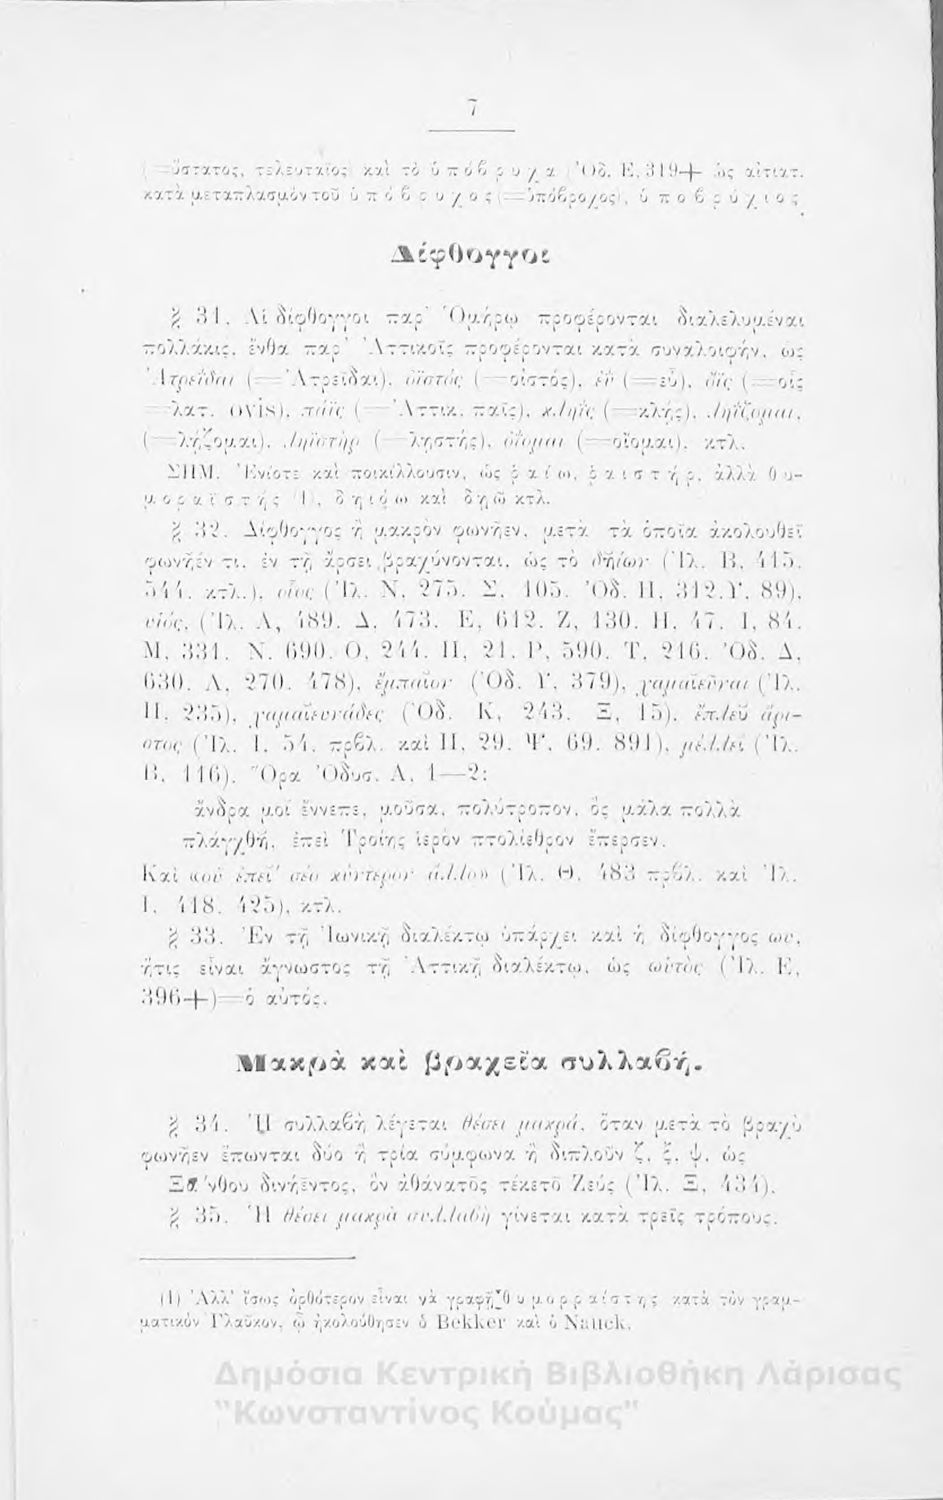 7
(=ὕστατος, τελευταῖος) καὶ τὸ ὑπόβρυχα (Ὀδ. Ε, 319+ ὡς αἰτιατ.
κατὰ μεταπλασμὸν τοῦ ὑπόβρυχος (=ὑπόβροχος), ὑποβρύχιος
Δίφθογγοι
§ 31. Αἱ δίφθογγοι παρ' Ὁμήρῳ προφέρονται διαλελυμέναι
πολλάκις, ἔνθα παρ' Ἀττικοῖς προφέρονται κατὰ συναλοιφήν, ὡς
Ἀτρεΐδαι (=Ἀτρεῖδαι), ὀϊστός (=οἰστός), ἐΰ (=εὖ), ὄϊς (=οἶς
=λατ. ovis), πάϊς (=Ἀττικ. παῖς), κληῒς (=κλῄς), ληΐζομαι,
(=λῄζομαι), ληϊστὴρ (=λῃστής), ὀΐομαι (=οἴομαι), κτλ.
ΣΗΜ. Ἐνίοτε καὶ ποικίλλουσιν, ὡς ῥαίω, ῥαιστήρ, ἀλλὰ θυ-
μοραϊστής (1), δηιόω καὶ δῃῶ κτλ.
§ 32. Δίφθογγος ἢ μακρὸν φωνῆεν, μετὰ τὰ ὁποῖα ἀκολουθεῖ
φωνῆέν τι, ἐν τῇ ἄρσει βραχύνονται, ὡς τὸ δηίων (Ἰλ. Β, 415,
544, κτλ.), οἷος (Ἰλ. Ν, 275. Σ, 105. Ὀδ. Η, 312. Υ, 89),
υἱός, (Ἰλ. Α, 489. Δ, 473. Ε, 612. Ζ, 130. Η, 47. Ι, 84.
Μ, 331. Ν, 690. Ο, 244. Π, 21. Ρ, 590. Τ, 216. Ὀδ. Δ,
630. Λ, 270. 478), ἔμπαιον (Ὀδ. Υ, 379), χαμαιεῦναι (Ἰλ.
Π, 235), χαμαιευνάδες (Ὀδ. Κ, 243. Ξ, 15), ἔπλευ ἄρι-
στος (Ἰλ. Ι, 54. πρβλ. καὶ Π, 29. Ψ, 69. 891), μέλλει (Ἰλ.
Β, 116). Ὅρα Ὀδυσ. Α, 1—2:
ἄνδρα μοί ἔννεπε, μοῦσα, πολύτροπον, ὃς μάλα πολλὰ
πλάγχθη, ἐπεὶ Τροίης ἱερὸν πτολίεθρον ἔπερσεν.
Καὶ «οὐ ἐπεὶ σέο κύντερον ἄλλο» (Ἰλ. Θ, 483 πρβλ. καὶ Ἰλ.
Ι, 418. 425), κτλ.
§ 33. Ἐν τῇ Ἰωνικῇ διαλέκτῳ ὑπάρχει καὶ ἡ δίφθογγος ωυ,
ἥτις εἶναι ἄγνωστος τῇ Ἀττικῇ διαλέκτῳ, ὡς ωὑτὸς (Ἰλ. Ε,
396+)=ὁ αὐτός.
Μακρὰ καὶ βραχεῖα συλλαβή.
§ 34. Ἡ συλλαβὴ λέγεται θέσει μακρά, ὅταν μετὰ τὸ βραχὺ
φωνῆεν ἕπωνται δύο ἢ τρία σύμφωνα ἢ διπλοῦν ζ, ξ, ψ, ὡς
Ξάνθου δινήεντος, ὃν ἀθάνατος τέκετο Ζεύς (Ἰλ. Ξ, 434).
§ 35. Ἡ θέσει μακρὰ συλλαβὴ γίνεται κατὰ τρεῖς τρόπους.
(1) Ἀλλ' ἴσως ὀρθότερον εἶναι νὰ γραφῇ θυμορραίστης κατὰ τὸν γραμ-
ματικὸν Γλαῦκον, ᾧ ἠκολούθησεν ὁ Bekker καὶ ὁ Nauck.
Δημόσια Κεντρική Βιβλιοθήκη Λάρισας
"Κωνσταντίνος Κούμας"